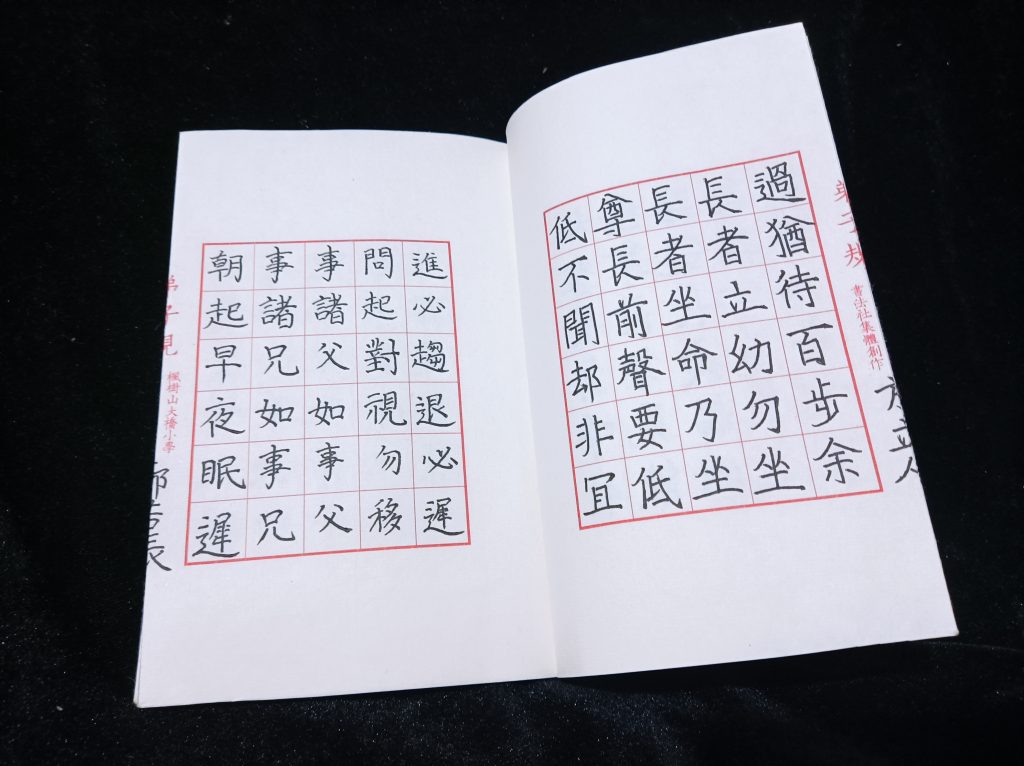 弟子規
書法社集體創作
過猶待百步余
長者立幼勿坐
長者坐命乃坐
尊長前聲要低
低不聞却非冝
進必趨退必遲
問起對視勿移
事諸父如事父
事諸兄如事兄
朝起早夜眠遲
楓樹山大橋小學